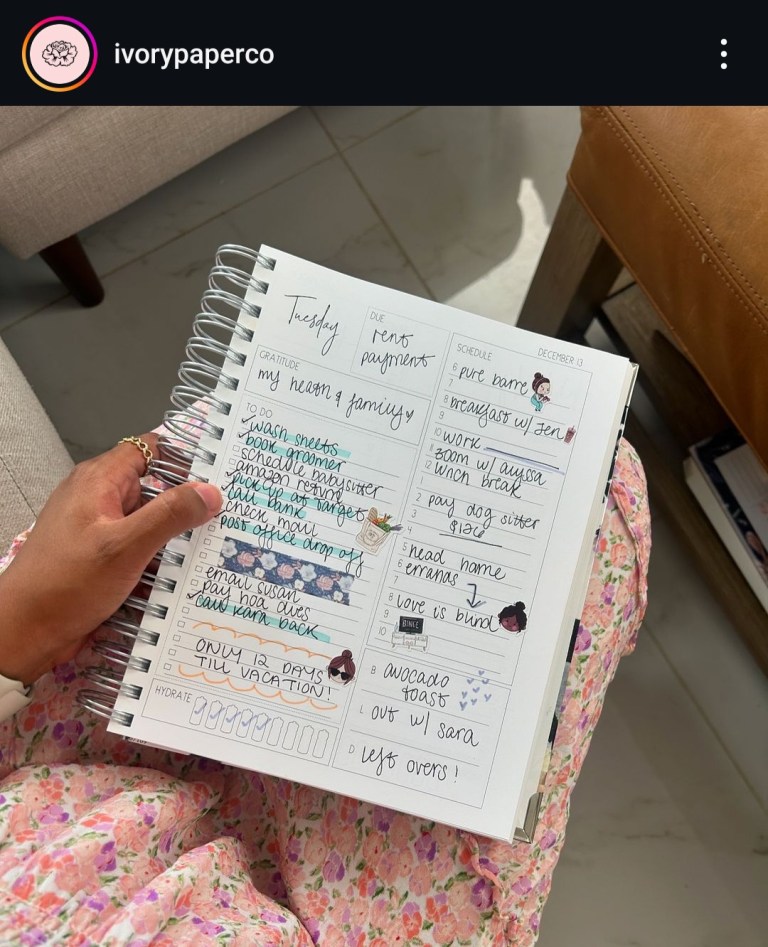 ivorypaperco
Tuesday
DUE
rent
payment
GRATITUDE
my health & family
TO DO
wash sheets
book groomer
schedule babysitter
amazon return
pick up at target
call bank
check mail
post office drop off
email susan
pay hoa dues
call kara back
ONLY 12 DAYS
TILL VACATION!
HYDRATE
SCHEDULE
DECEMBER 13
6 pure barre
7
8 breakfast w/ Jen
9
10 work
11 zoom w/ alyssa
12 lunch break
1
2 pay dog sitter
3 $126
4
5 head home
6 errands
7
8 love is blind
9
BINGE
10
B avocado
toast
L out w/ sara
D left overs!